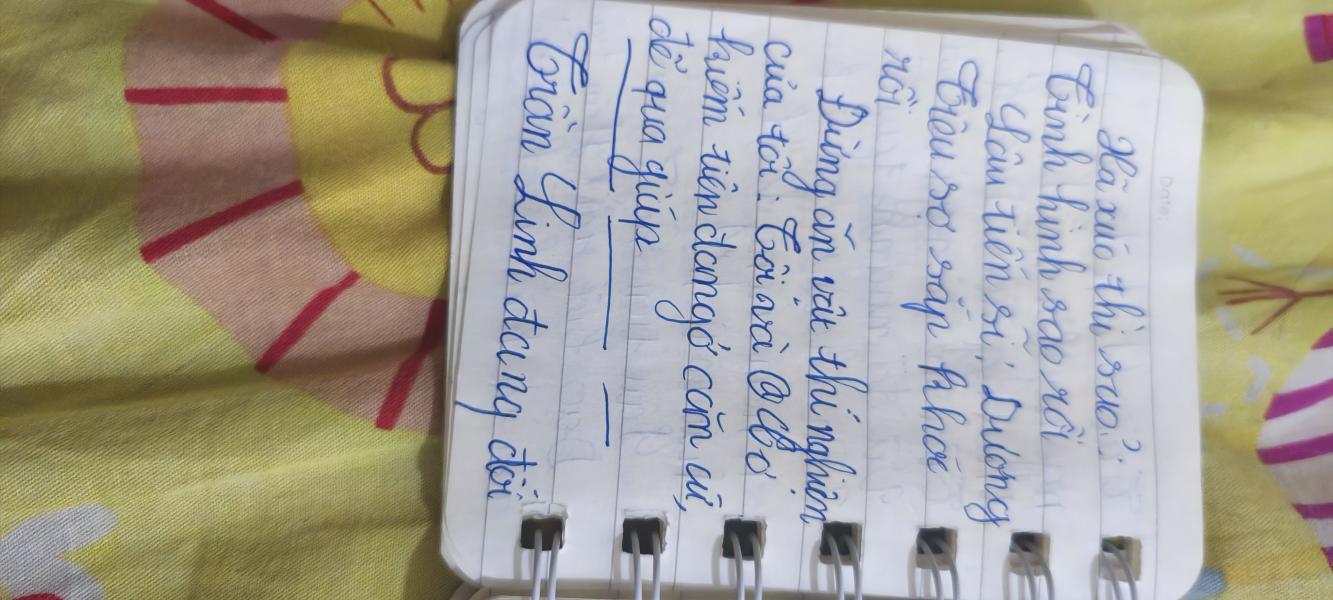 Date:
Hã xúc thì sao?:
Tình hình sao rồi
Lâu tiến sĩ, Dương
Triêu sơ sắp khoẻ
rồi
Dừng ăn vật thí nghiệm
của tôi. Tôi và
hiếm tiên đang ở căn cứ,
để qua giúp
Trần Linh đang đối